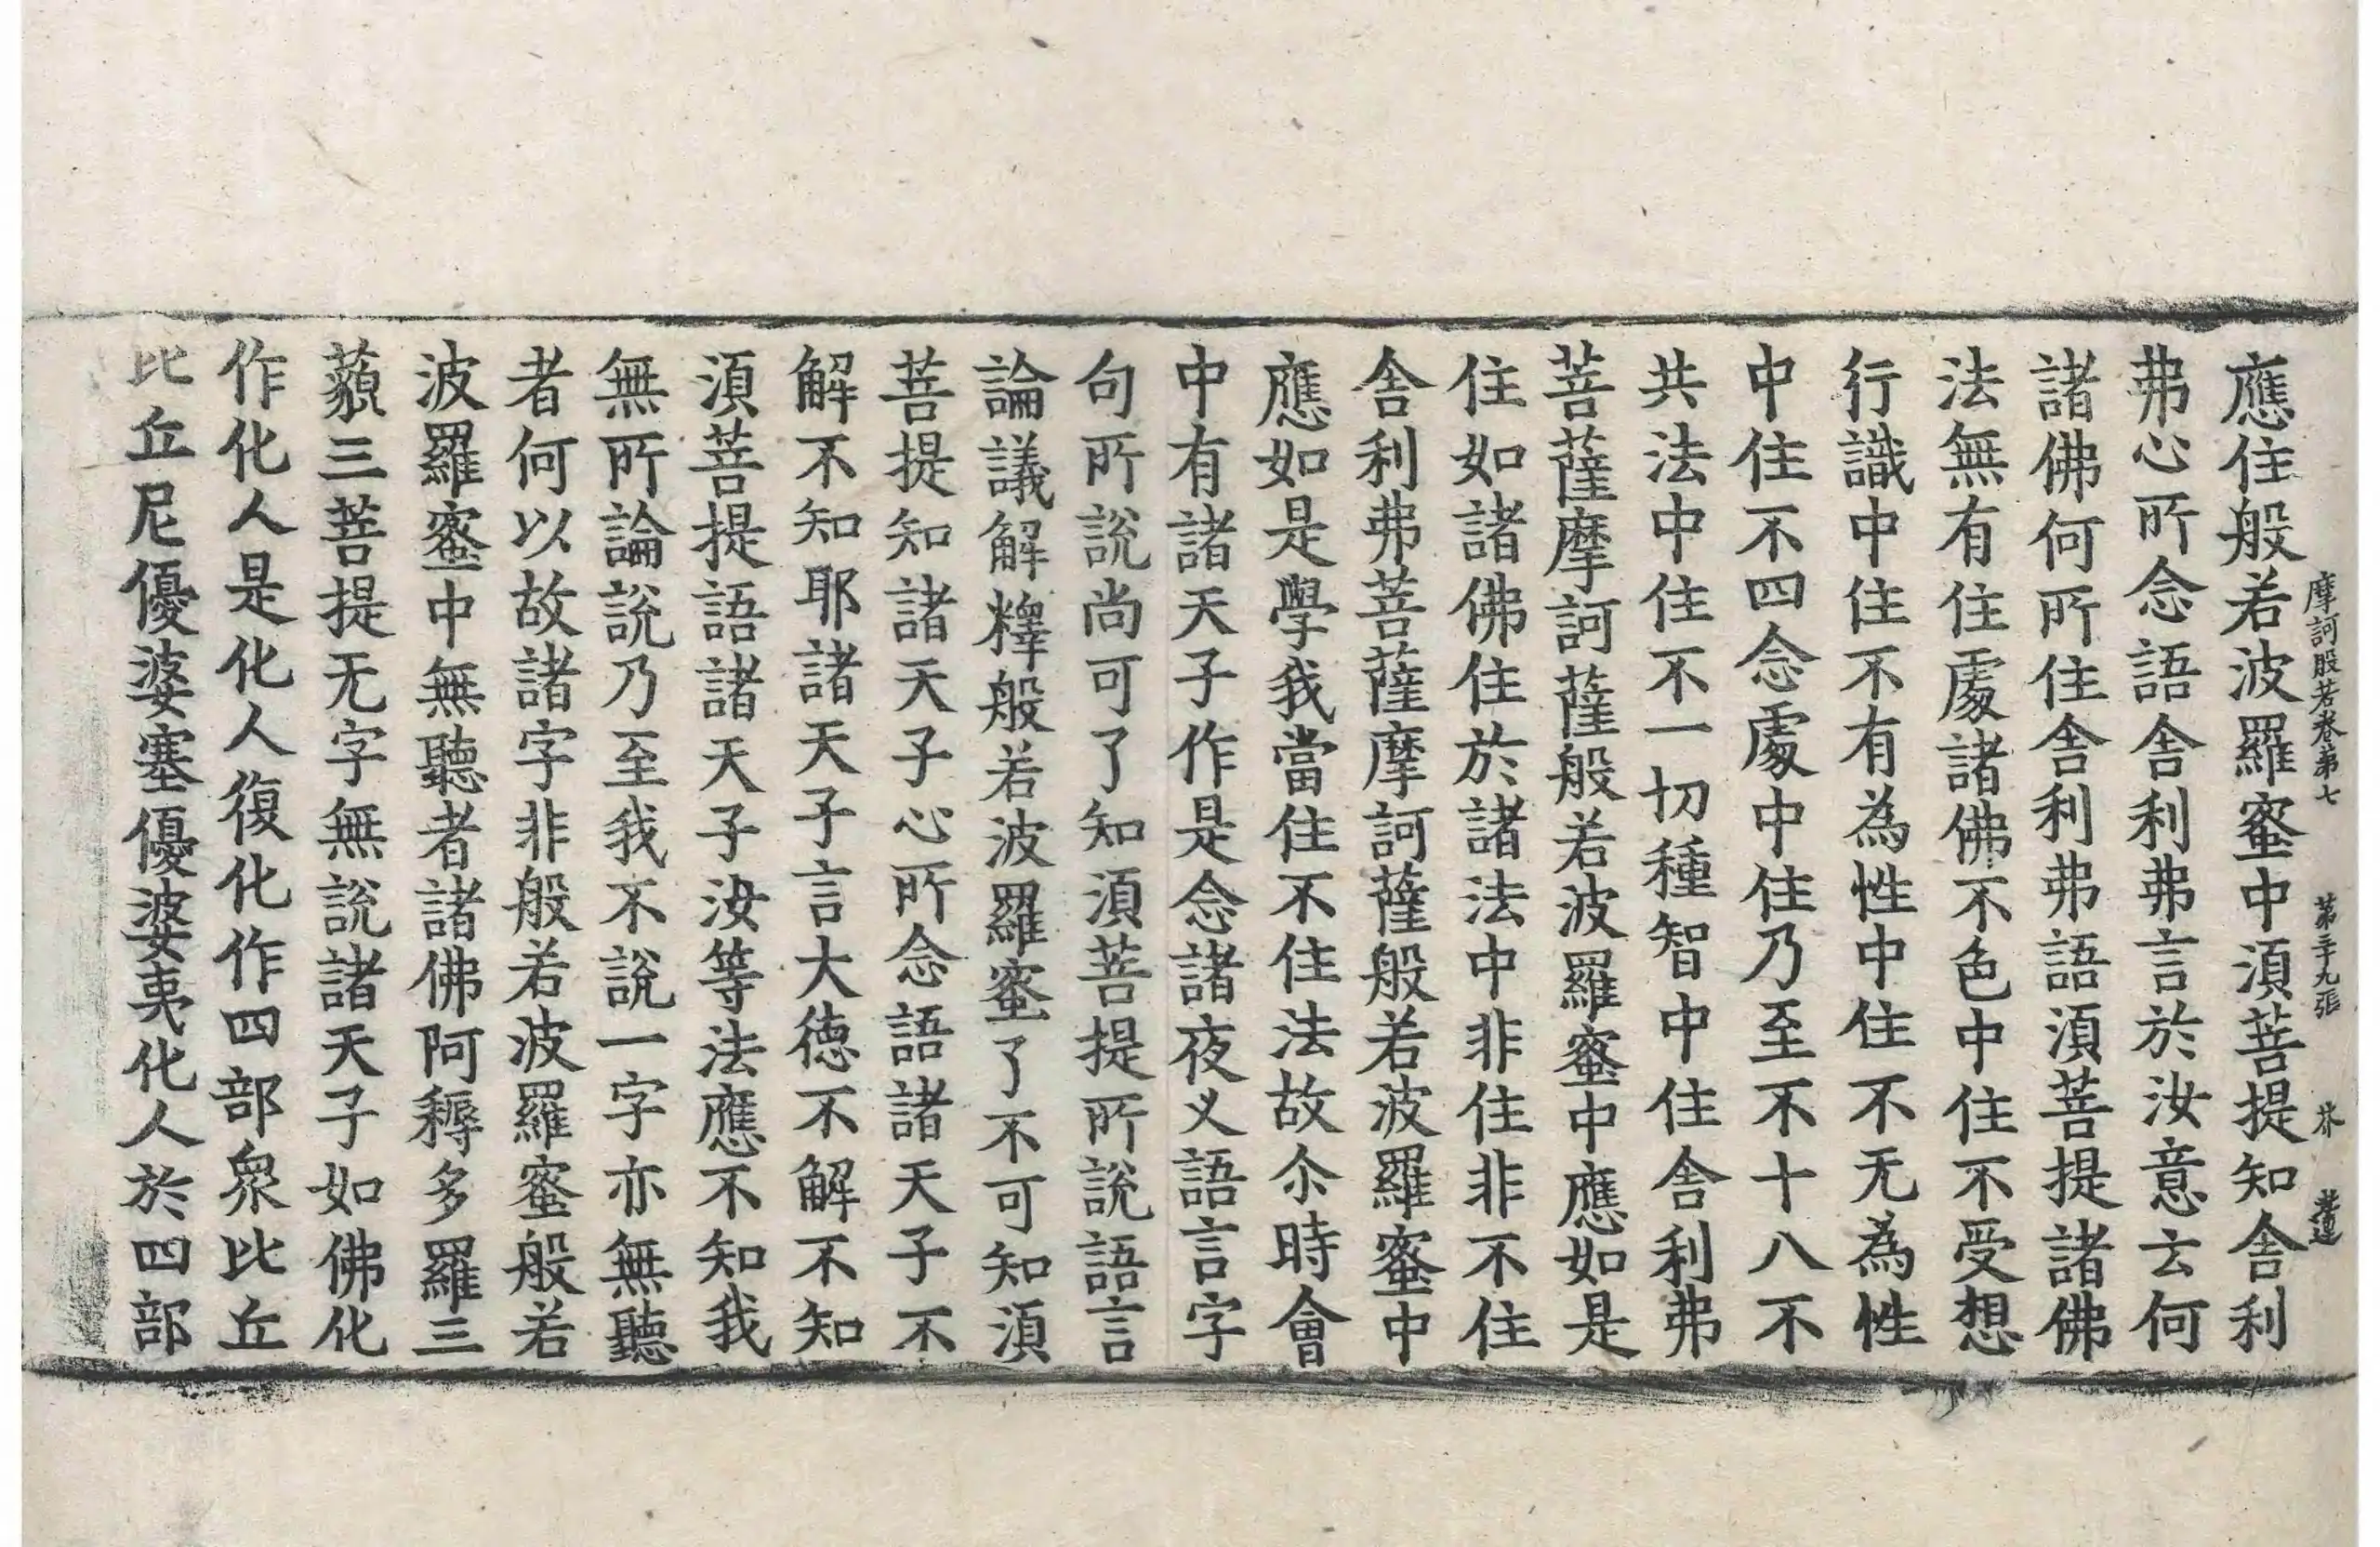 摩訶般若卷第七 第三十九張 芥
應住般若波羅蜜中湏菩提知舍利
弗心所念語舍利弗言於汝意云何
諸佛何所住舍利弗語湏菩提諸佛
法無有住處諸佛不色中住不受想
行識中住不有為性中住不无為性
中住不四念處中住乃至不十八不
共法中住不一切種智中住舍利弗
菩薩摩訶薩般若波羅蜜中應如是
住如諸佛住於諸法中非住非不住
舍利弗菩薩摩訶薩般若波羅蜜中
應如是學我當住不住法故尒時會
中有諸天子作是念諸夜叉語言字
句所說尚可了知湏菩提所說語言
論議解釋般若波羅蜜了不可知湏
菩提知諸天子心所念語諸天子不
解不知耶諸天子言大德不解不知
湏菩提語諸天子汝等法應不知我
無所論說乃至我不說一字亦無聽
者何以故諸字非般若波羅蜜般若
波羅蜜中無聽者諸佛阿耨多羅三
藐三菩提无字無說諸天子如佛化
作化人是化人復化作四部衆比丘
比丘尼優婆塞優婆夷化人於四部